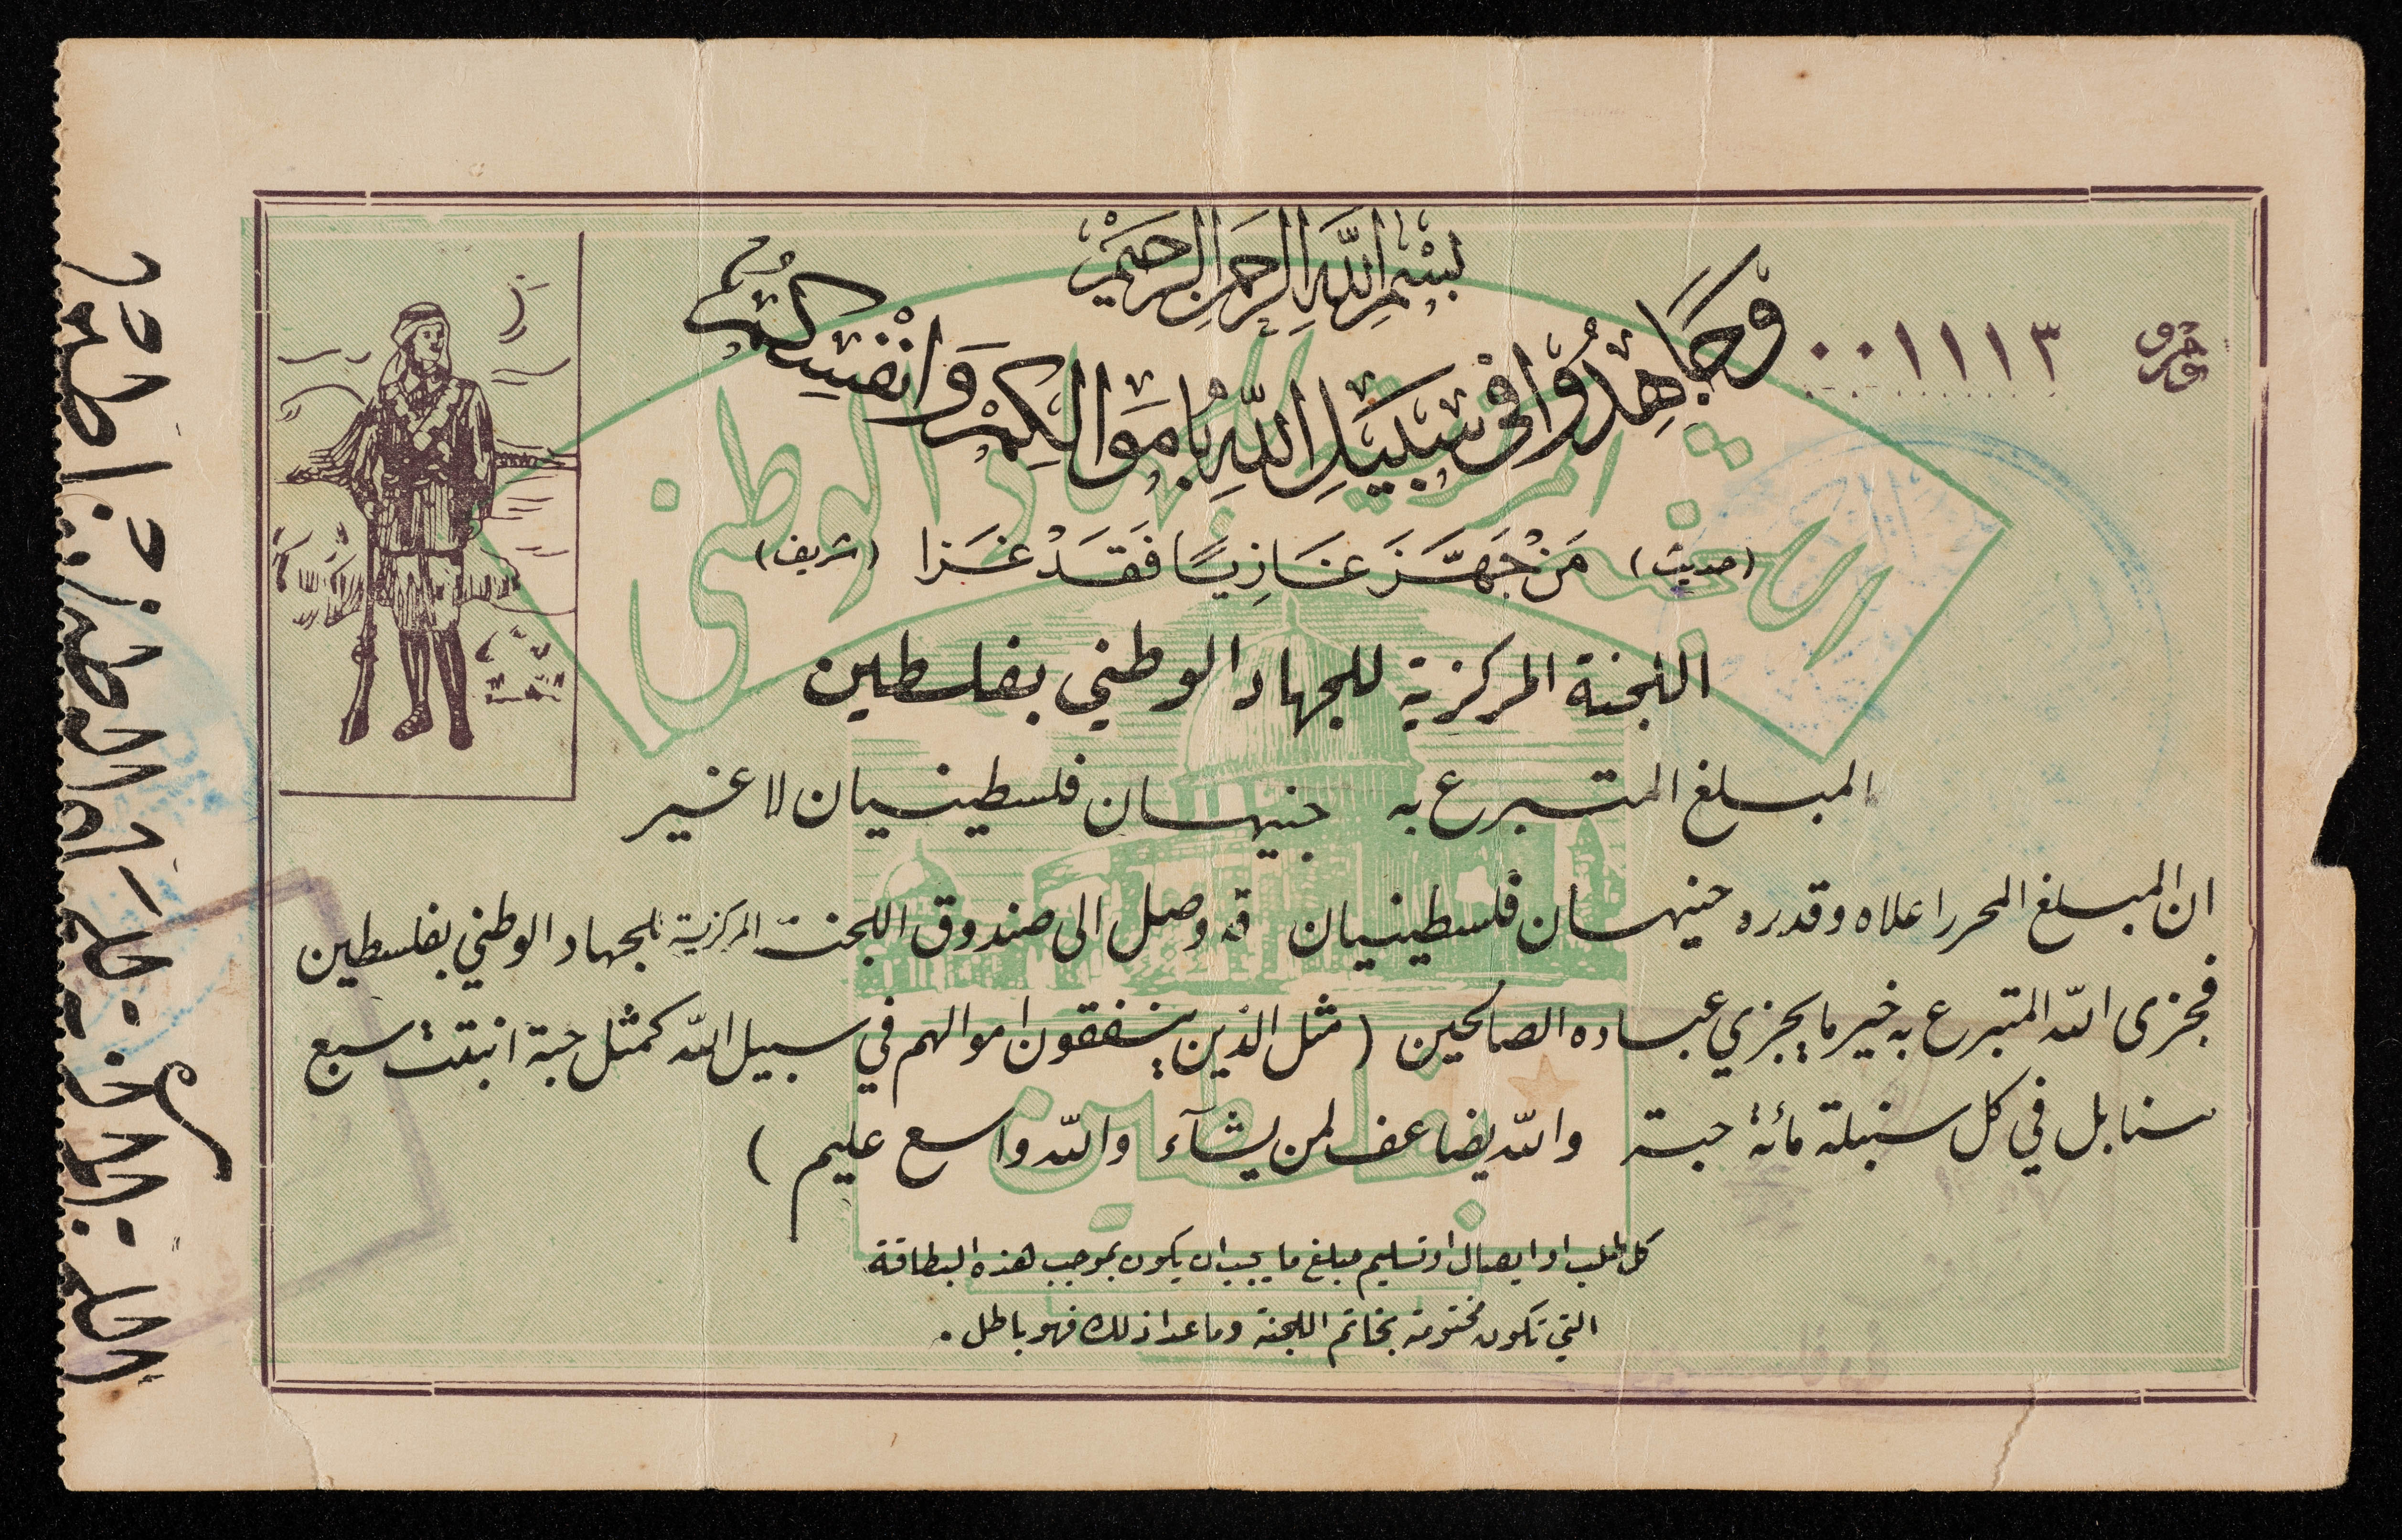 بِسْمِ اللَّهِ الرَّحْمَنِ الرَّحِيمِ
وَجَاهِدُوا فِي سَبِيلِ اللَّهِ بِأَمْوَالِكُمْ وَأَنْفُسِكُمْ
٠٠١١١٣
(حديث) مَنْ جَهَّزَ غَازِيًا فَقَدْ غَزَا (شريف)
اللجنة المركزية للجهاد الوطني بفلسطين
المبلغ المتبرع به جنيهان فلسطينيان لا غير
ان المبلغ المحرر اعلاه وقدره جنيهان فلسطينيان قد وصل الى صندوق اللجنة المركزية للجهاد الوطني بفلسطين
فجزى الله المتبرع به خير ما يجزي عباده الصالحين (مثل الذين ينفقون اموالهم في سبيل الله كمثل حبة انبتت سبع
سنابل في كل سنبلة مائة حبة والله يضاعف لمن يشآء والله واسع عليم)
كل طلب او ايصال او تسليم مبلغ ما يجب ان يكون بموجب هذه البطاقة
التي تكون مختومة بخاتم اللجنة وما عدا ذلك فهو باطل .
اللجنة المركزية للجهاد الوطني
بفلسطين